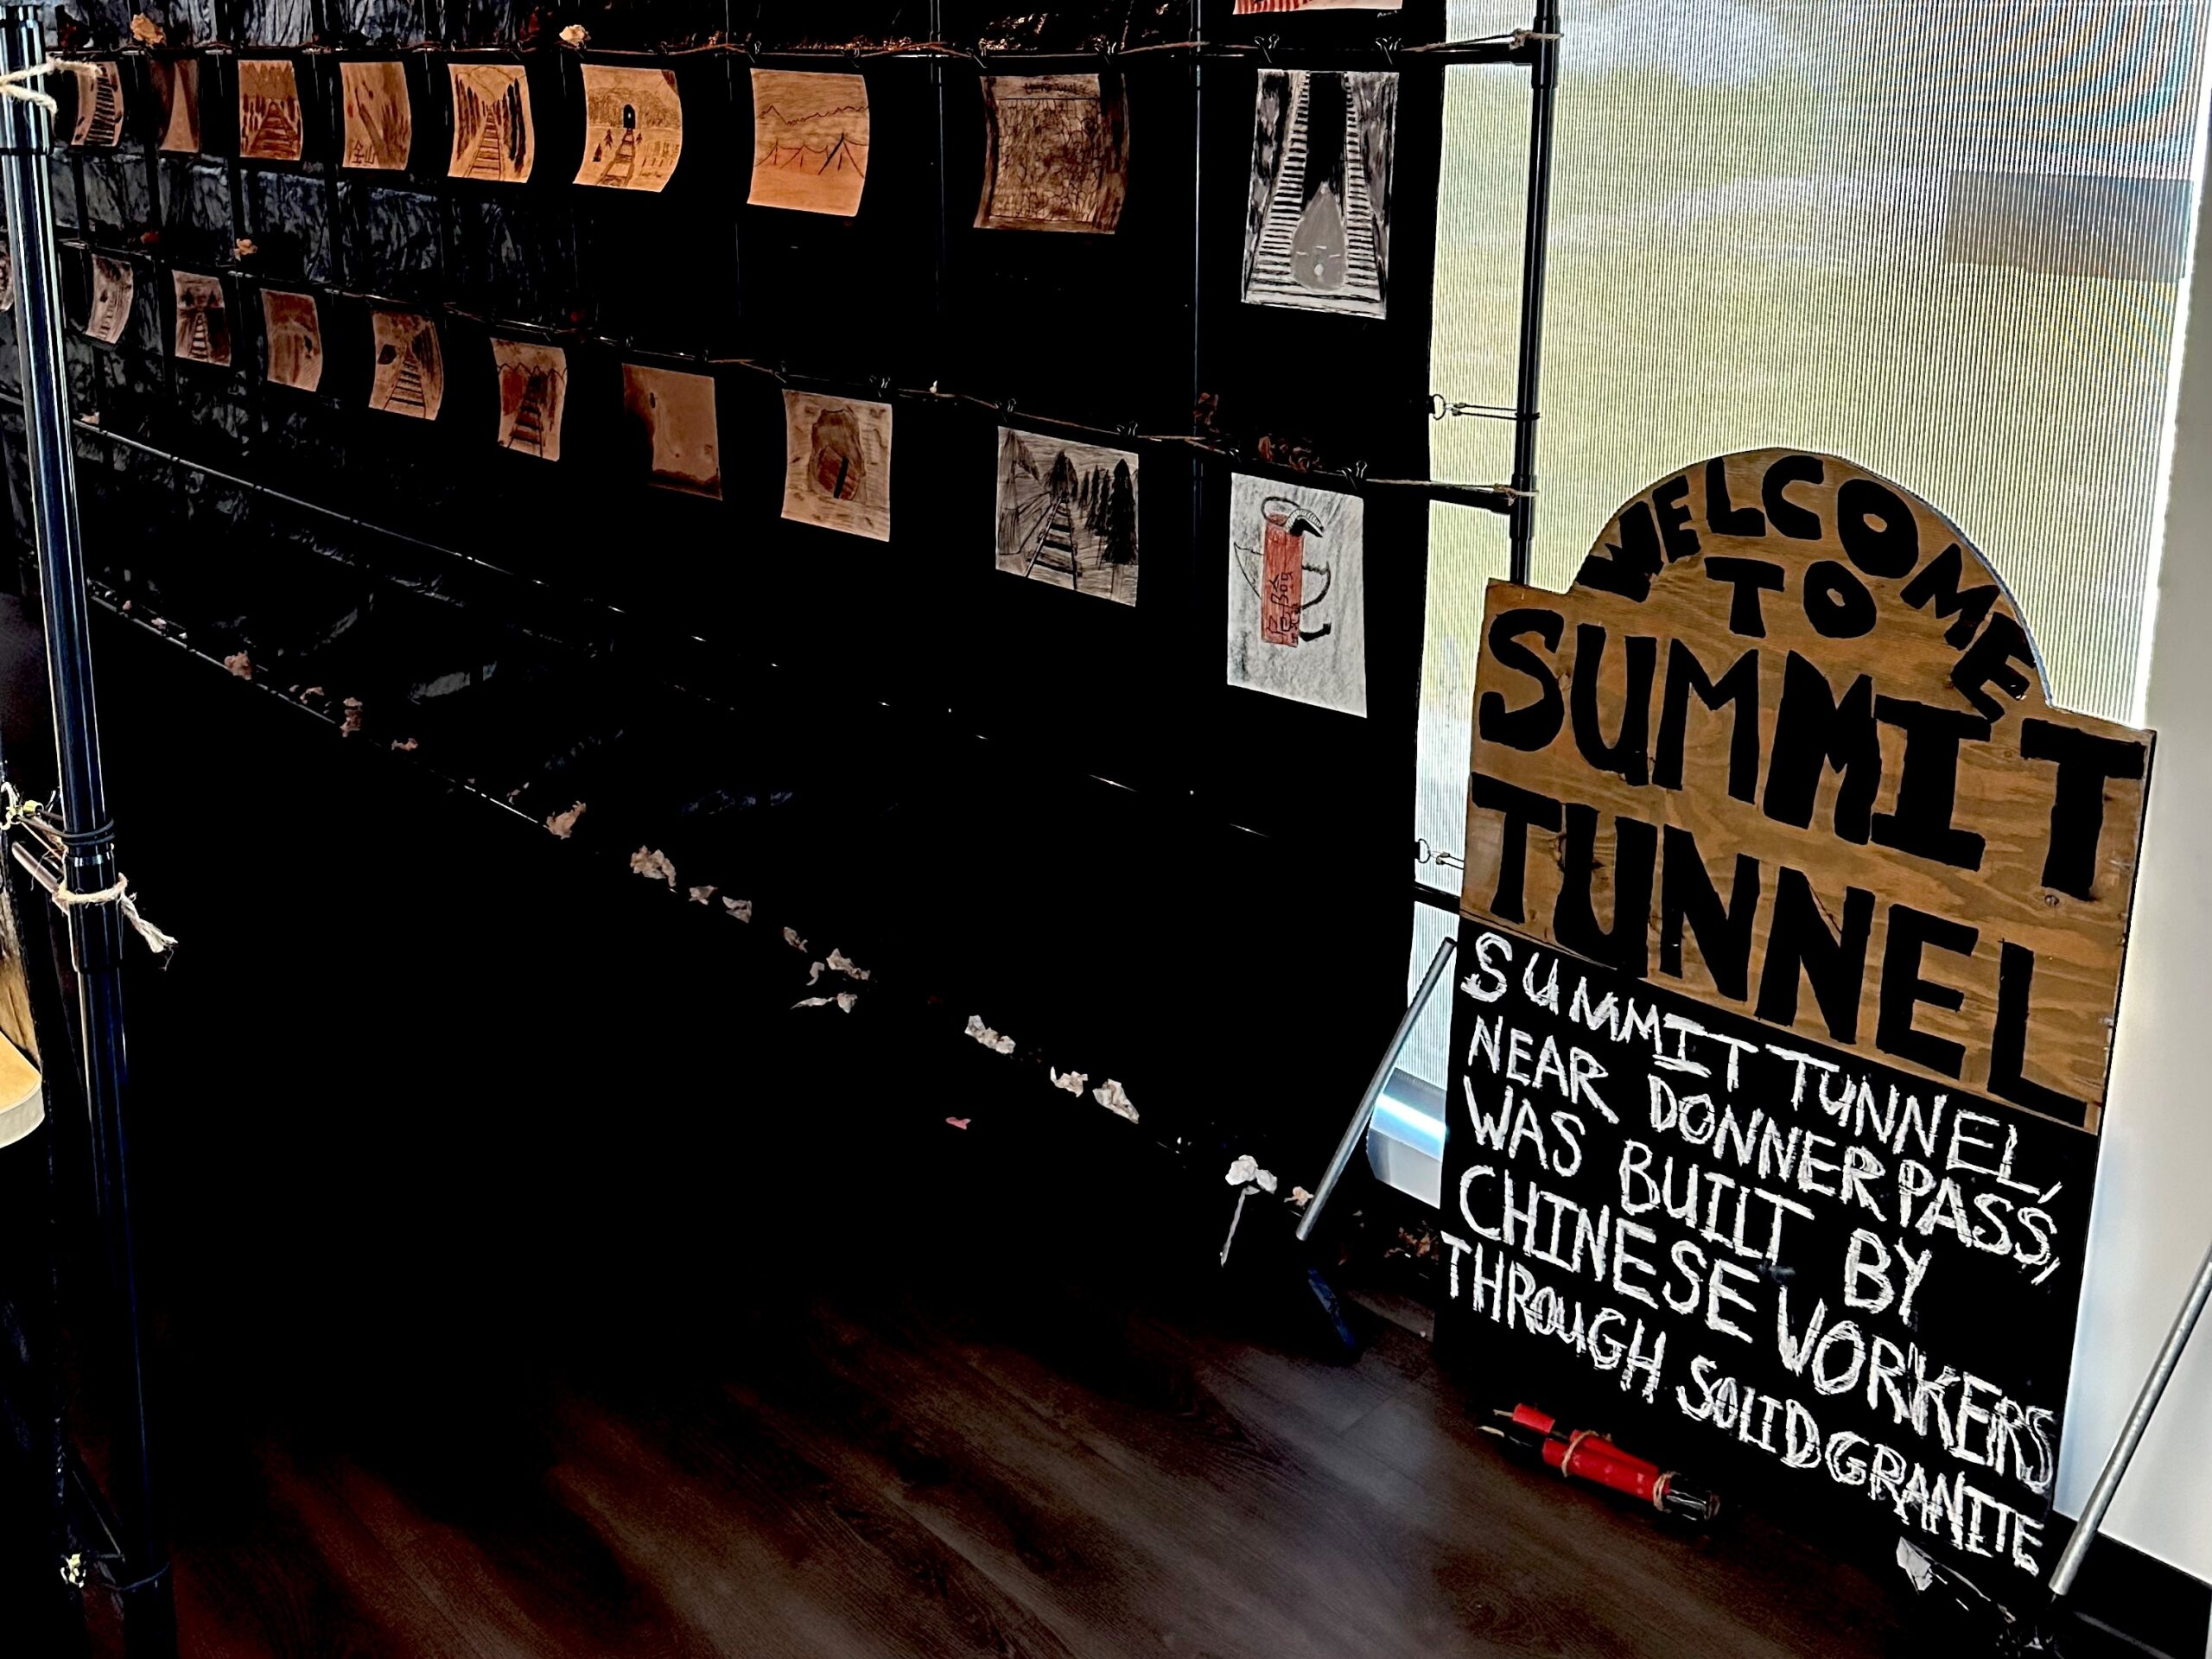 WELCOME
TO
SUMMIT
TUNNEL
SUMMIT TUNNEL,
NEAR DONNER PASS,
WAS BUILT BY
CHINESE WORKERS
THROUGH SOLID GRANITE
金山